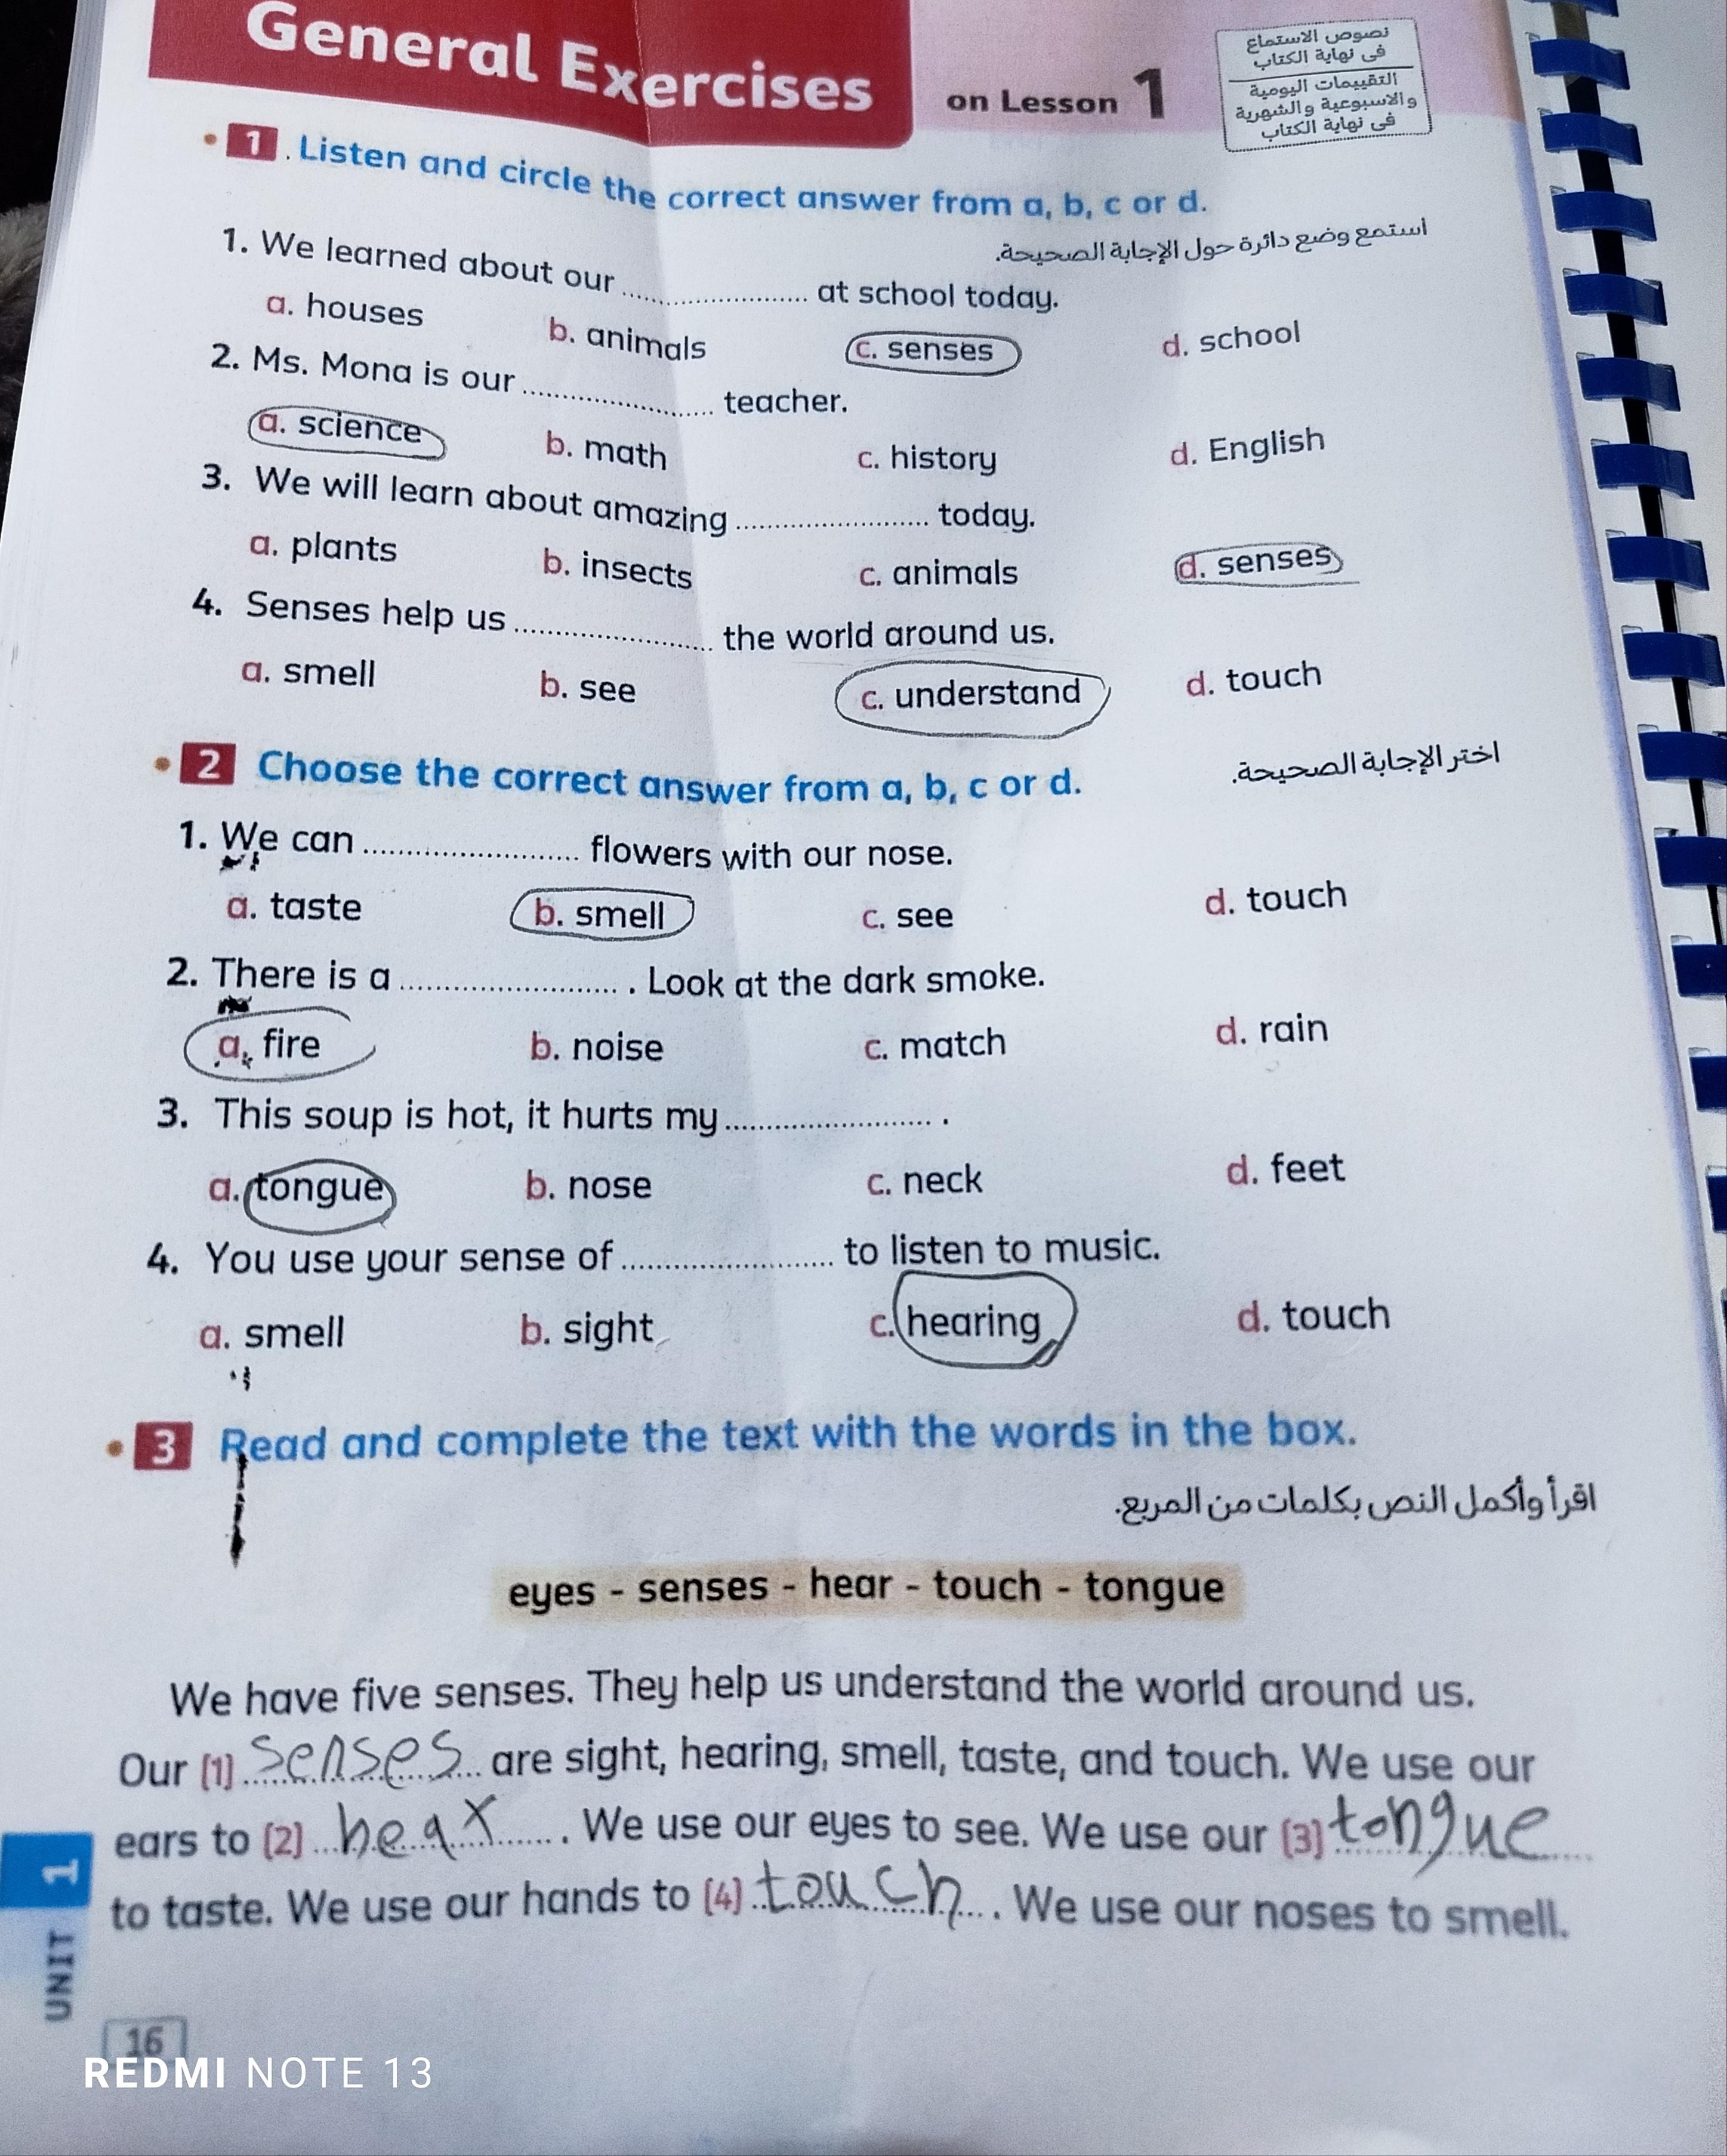 General Exercises on Lesson 1
نصوص الاستماع
فى نهاية الكتاب
التقييمات اليومية
والاسبوعية والشهرية
فى نهاية الكتاب
1 . Listen and circle the correct answer from a, b, c or d.
استمع وضع دائرة حول الإجابة الصحيحة.
1. We learned about our ........................ at school today.
a. houses b. animals c. senses d. school
2. Ms. Mona is our ........................ teacher.
a. science b. math c. history d. English
3. We will learn about amazing ........................ today.
a. plants b. insects c. animals d. senses
4. Senses help us ........................ the world around us.
a. smell b. see c. understand d. touch
2 Choose the correct answer from a, b, c or d.
اختر الإجابة الصحيحة.
1. We can ........................ flowers with our nose.
a. taste b. smell c. see d. touch
2. There is a ........................ . Look at the dark smoke.
a. fire b. noise c. match d. rain
3. This soup is hot, it hurts my ........................ .
a. tongue b. nose c. neck d. feet
4. You use your sense of ........................ to listen to music.
a. smell b. sight c. hearing d. touch
3 Read and complete the text with the words in the box.
اقرأ وأكمل النص بكلمات من المربع.
eyes - senses - hear - touch - tongue
We have five senses. They help us understand the world around us.
Our (1) senses are sight, hearing, smell, taste, and touch. We use our
ears to (2) hear . We use our eyes to see. We use our (3) tongue
to taste. We use our hands to (4) touch . We use our noses to smell.
UNIT 1
16
REDMI NOTE 13